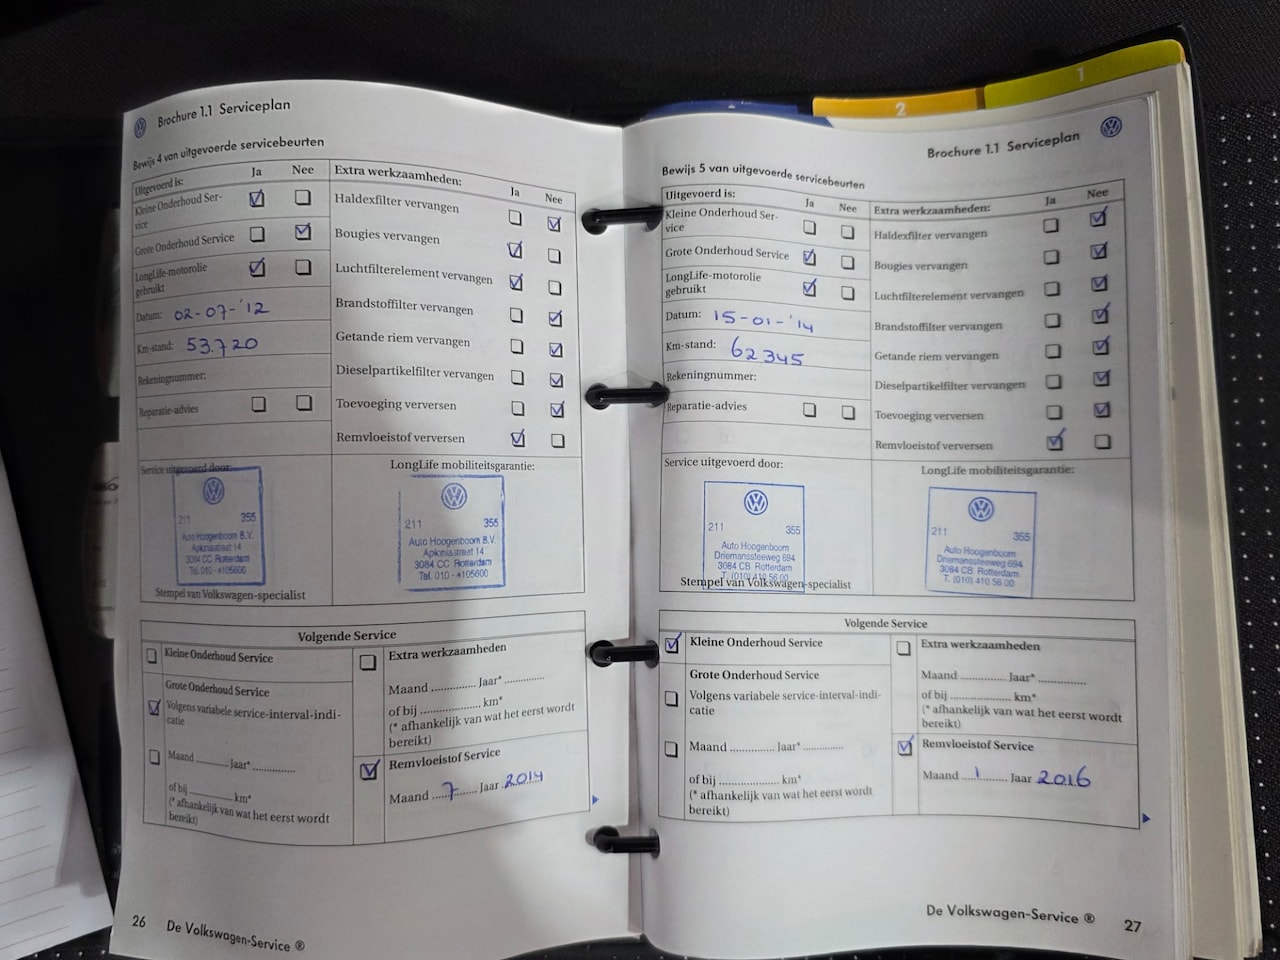 1
2
Brochure 1.1 Serviceplan
Bewijs 4 van uitgevoerde servicebeurten
Uitgevoerd is:
Ja
Nee
Kleine Onderhoud Ser-
vice
Grote Onderhoud Service
LongLife-motorolie
gebruikt
Datum: 02-07-'12
Km-stand: 53.720
Rekeningnummer:
Reparatie-advies
Extra werkzaamheden:
Ja
Nee
Haldexfilter vervangen
Bougies vervangen
Luchtfilterelement vervangen
Brandstoffilter vervangen
Getande riem vervangen
Dieselpartikelfilter vervangen
Toevoeging verversen
Remvloeistof verversen
Service uitgevoerd door:
211 355
Auto Hoogenboom B.V.
Aploniastraat 14
3084 CC Rotterdam
Tel. 010 - 4105600
Stempel van Volkswagen-specialist
LongLife mobiliteitsgarantie:
211 355
Auto Hoogenboom B.V.
Aploniastraat 14
3084 CC Rotterdam
Tel. 010 - 4105600
Volgende Service
Kleine Onderhoud Service
Grote Onderhoud Service
Volgens variabele service-interval-indi-
catie
Maand .............. Jaar* ..............
of bij .................... km*
(* afhankelijk van wat het eerst wordt
bereikt)
Extra werkzaamheden
Maand .............. Jaar* ..............
of bij .................... km*
(* afhankelijk van wat het eerst wordt
bereikt)
Remvloeistof Service
Maand 7 Jaar 2014
26 De Volkswagen-Service ®
Brochure 1.1 Serviceplan
Bewijs 5 van uitgevoerde servicebeurten
Uitgevoerd is:
Ja
Nee
Kleine Onderhoud Ser-
vice
Grote Onderhoud Service
LongLife-motorolie
gebruikt
Datum: 15-01-'14
Km-stand: 62345
Rekeningnummer:
Reparatie-advies
Extra werkzaamheden:
Ja
Nee
Haldexfilter vervangen
Bougies vervangen
Luchtfilterelement vervangen
Brandstoffilter vervangen
Getande riem vervangen
Dieselpartikelfilter vervangen
Toevoeging verversen
Remvloeistof verversen
Service uitgevoerd door:
211 355
Auto Hoogenboom
Driemanssteeweg 694
3084 CB Rotterdam
T. (010) 410 56 00
Stempel van Volkswagen-specialist
LongLife mobiliteitsgarantie:
211 355
Auto Hoogenboom
Driemanssteeweg 694
3084 CB Rotterdam
T. (010) 410 56 00
Volgende Service
Kleine Onderhoud Service
Grote Onderhoud Service
Volgens variabele service-interval-indi-
catie
Maand .............. Jaar* ..............
of bij .................... km*
(* afhankelijk van wat het eerst wordt
bereikt)
Extra werkzaamheden
Maand .............. Jaar* ..............
of bij .................... km*
(* afhankelijk van wat het eerst wordt
bereikt)
Remvloeistof Service
Maand 1 Jaar 2016
De Volkswagen-Service ® 27